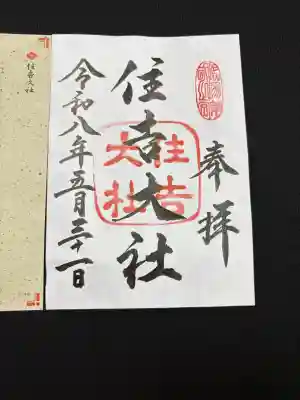 奉拝
住吉大社
住吉大社
令和八年五月三十一日
住吉大社